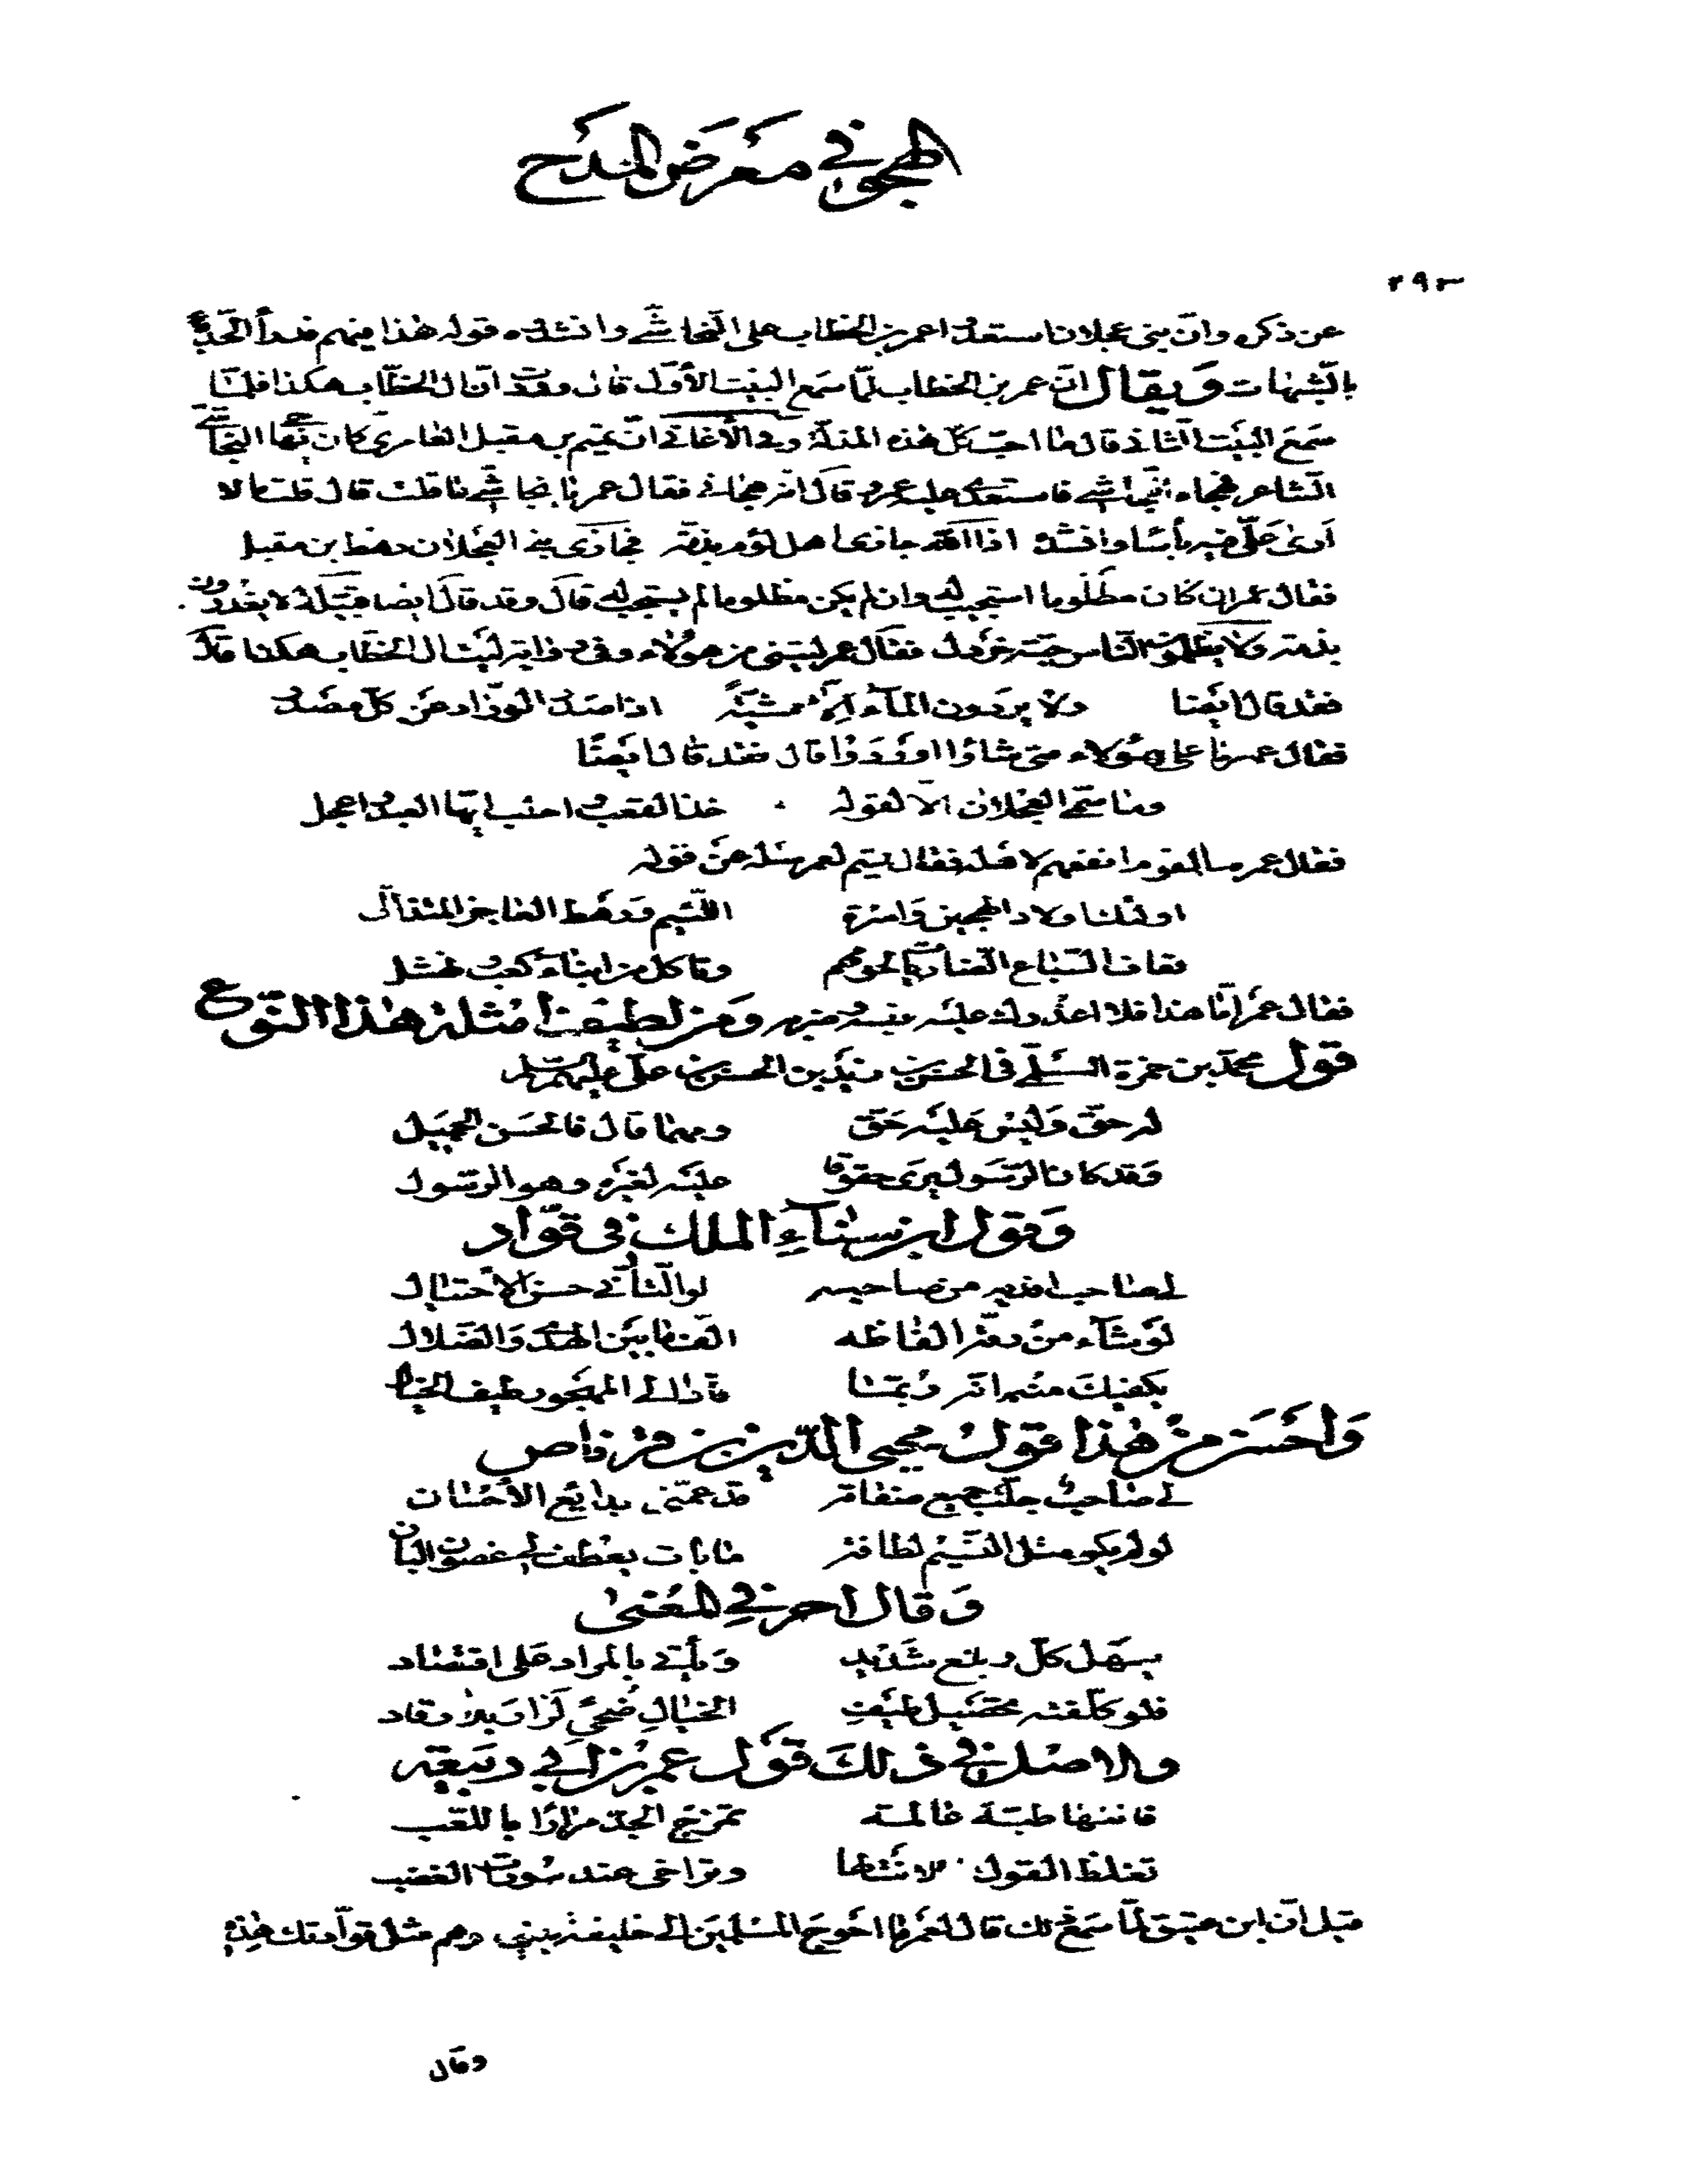 الهجو في معرض المدح
٢٩٢
عن ذكره وانّ بنى عجلان استعدوا عمر بن الخطاب على النجاشي وانشدوه قوله هذا فيهم فدرأ الحدّ
بالشبهات ويقال انّ عمر بن الخطاب لمّا سمع البيت الأوّل قال وددت انّ ال الخطّاب هكذا فلمّا
سمع البيت الثاني قال ما احبّ كلّ هذه المذلّة وفي الأغاني انّ تميم بن مقبل العامري كان النجاشي
الشاعر فهجاه النجاشي فاستعدى عليه عمر وقال انه هجاني فقال عمر يا نجاشي ما قلت قال قلت ما لا
ارى علىّ فيه بأسا وانشد اذا الله جازى اهل لؤم بذمّة فجازى بني العجلان رهط بن مقبل
فقال عمر ان كان مظلوما استجيب له وان لم يكن مظلوما لم يستجب له قال وقد قال ايضا قبيّلة لا يغدرون
بذمة ولا يظلمون الناس حبّة خردل فقال عمر ليتني من هؤلاء وفي رواية ليت ال الخطّاب هكذا قال
فقد قال ايضا ولا يردون المآء الّا عشيّة اذا صدر الورّاد عن كلّ منهل
فقال عمر ما على هؤلاء متى شاؤا اوردوا قال فقد قال ايضًا
وما سمّي العجلان الّا لقوله خذ القعب واحلب ايّها العبد واعجل
فقال عمر سيد القوم انفعهم لاهله فقال تميم لعمر سله عن قوله
اولئك اولاد الهجين واسرة اللّئيم ورهط العاجز المتذلّل
تعاف السّباع الضاريات لحومهم وتاكل من ابناء كعب ونهشل
فقال عمر امّا هذا فلا اعذرك عليه ومن لطيف امثلة هذا النّوع
قول محمد بن حمزة السّلمي في الحسن بن زيد بن الحسن بن علي عليهم السلام
له حقّ وليس عليه حقّ ومهما قال فالحسن الجميل
وقد كان الرّسول يرى حقوقا عليه لغيره وهو الرّسول
وقول ابن سناء الملك في قوّاد
لي صاحب افديه من صاحب لو التّأنّي حسن الاحتيال
لو شآء من رقّة الفاظه الّف ما بين الهدى والضّلال
يكفيك منه انه ربّما قاد الى المهجور طيف الخيال
واحسن من هذا قول محيي الدّين بن قرناص
لي صاحب جلّت جميع صفاته قد عمّني بدايع الأحسان
لو لم يكن مثل النّسيم لطافة ما بات يعطف لي غصون البان
وقال اخر في المعنى
يسهّل كلّ ممتنع شديد ويأتي بالمراد على اقتصاد
فلو كلّفته تحصيل طيف الخيال ضحىً لزار بلا رقاد
والاصل في ذلك قول عمر بن ابي ربيعة
فاتتها طبّة عالمة تمزج الجدّ مرارًا باللعب
تغلظ القول اذا لانت لها وتراخى عند سورات الغضب
قيل انّ ابن عتيق لمّا سمع ذلك قال لعمر ما احوج المسلمين الى خليفة مثل قوّادتك هذه
وقال